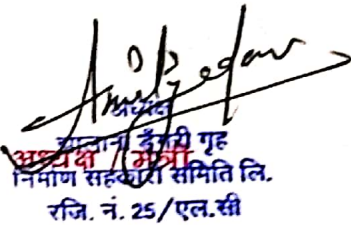 अध्यक्ष
गृह
अध्यक्ष / मंत्री
निर्माण सहकारी समिति लि.
रजि. नं. 25/एल.सी